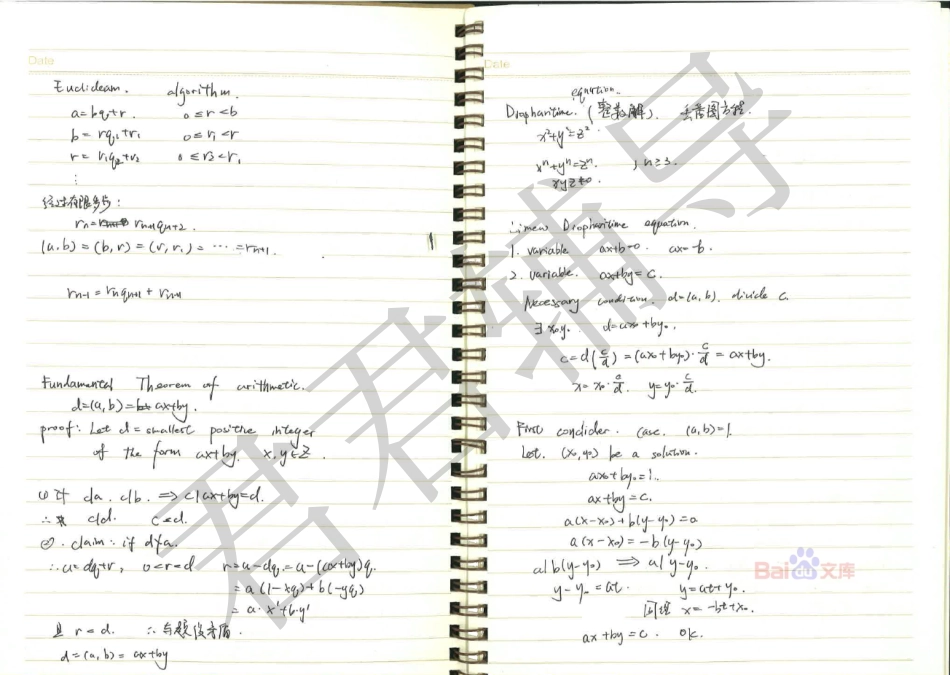 Date
Euclideam. algorithm.
a=bq+r. 0≤r<b
b=rq₁+r₁ 0≤r₁<r
r=r₁q₂+r₂ 0≤r₂<r₁
⋮
经过有限多步:
rₙ= rₙ₊₁qₙ₊₂.
(a,b)=(b,r)=(r,r₁)=⋯=rₙ₊₁.
rₙ₋₁=rₙqₙ₊₁+rₙ₊₁
Fundamental Theorem of arithmetic.
d=(a,b)= ax+by.
proof: Let d=smallest positive integer
of the form ax+by. x,y∈Z.
① if c|a. c|b. ⇒ c|ax+by=d.
∴ c|d. c≤d.
②. claim: if d∤a.
∴a=dq+r, 0<r<d r=a-dq=a-(ax+by)q.
=a(1-xq)+b(-yq)
=a·x'+b·y'
且 r<d. ∴与题设矛盾.
d=(a,b)=ax+by
Date
equation.
Diophantime.(整数解). 丢番图方程.
x²+y²=z².
xⁿ+yⁿ=zⁿ. ; n≥3.
xyz≠0.
Linear Diophantime equation.
1. variable ax+b=0. ax=-b.
2. variable. ax+by=c.
Necessary condition. d=(a,b). divide c.
∃x₀y₀. d=ax₀+by₀.
c=d(c/d)=(ax₀+by₀)·c/d=ax+by.
x=x₀·c/d. y=y₀·c/d.
First condider. case. (a,b)=1.
Let. (x₀,y₀) be a solution.
ax₀+by₀=1.
ax+by=c.
a(x-x₀)+b(y-y₀)=0
a(x-x₀)=-b(y-y₀)
a|b(y-y₀) ⇒ a|y-y₀.
y-y₀=at. y=at+y₀.
同理 x=-bt+x₀.
ax+by=c. ok.
君君辅导
Baidu文库